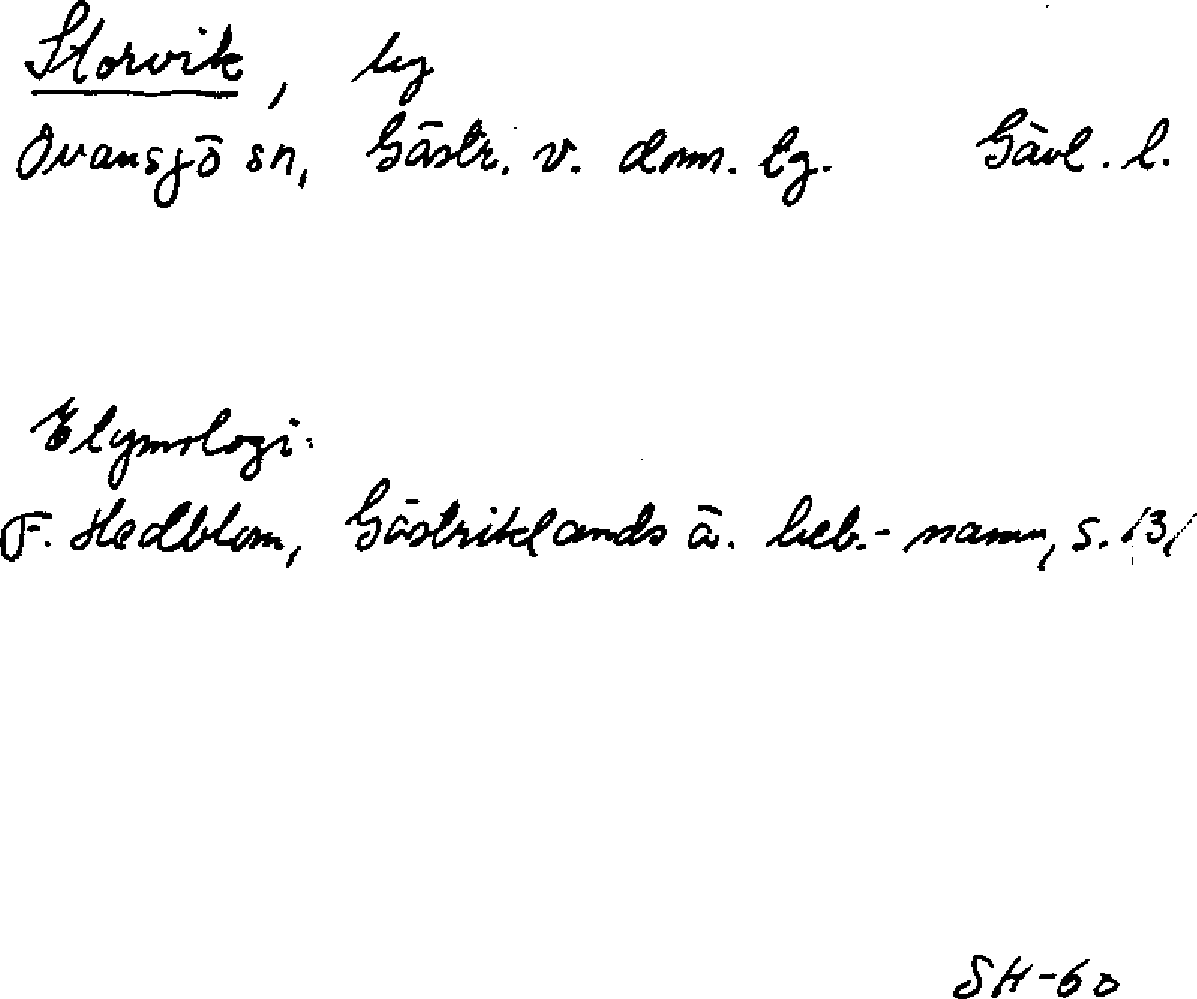 Storvik, by
Ovansjö sn, Gästr. v. doms. tg. Gävl. l.
Etymologi:
F. Hedblom, Gästriklands ä. beb.-namn, s. 131
SH-60